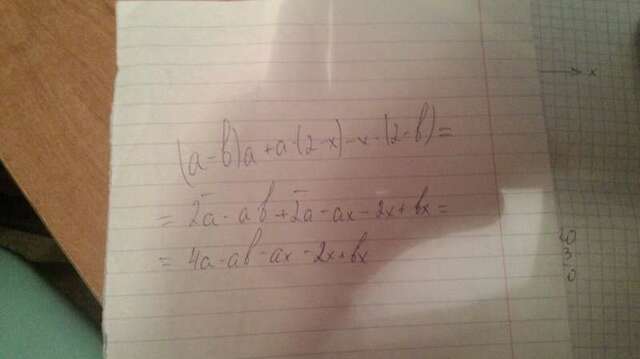 (a-b)a+a·(2-x)-x·(2-b)=
=2a-ab+2a-ax-2x+bx=
=4a-ab-ax-2x+bx
x
20
3
0